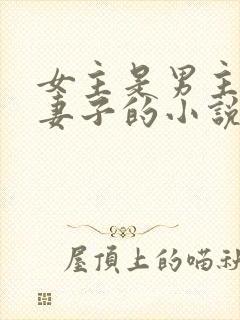 女主是男主
妻子的小說
屋頂上的喵社